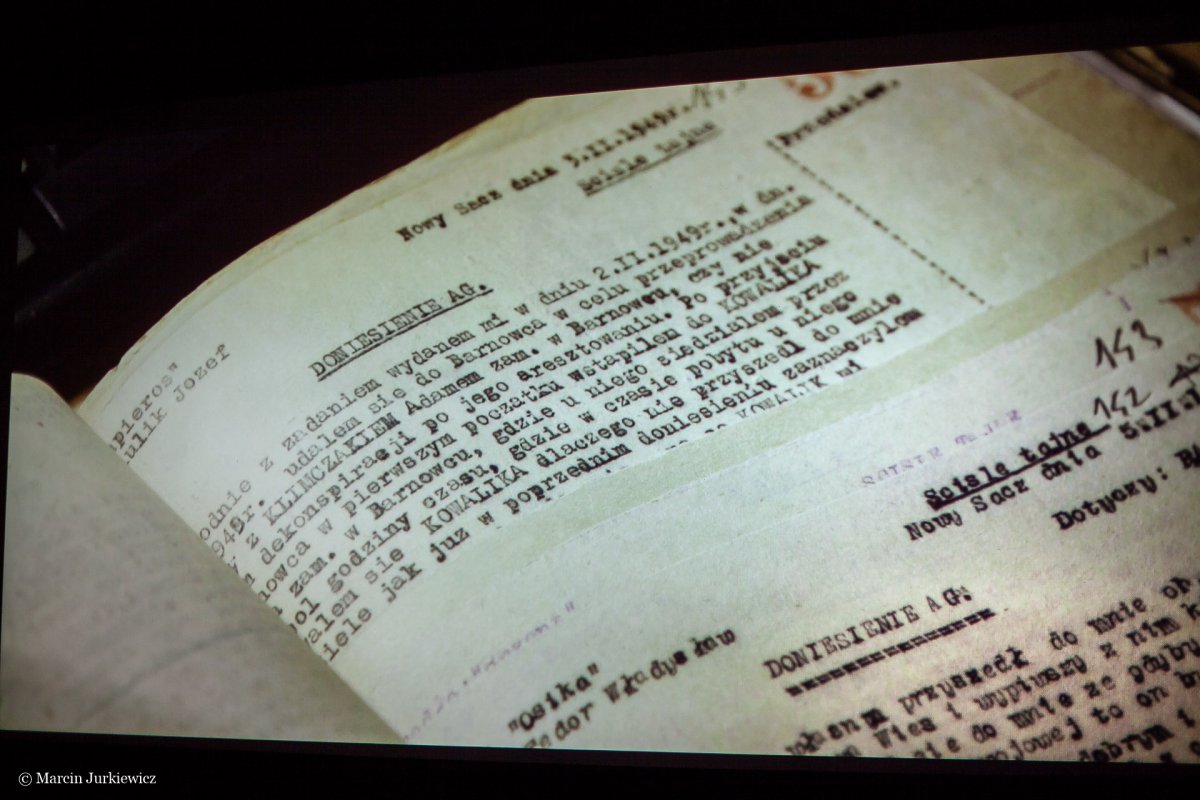 Nowy Sacz dnia 5.II.1949r.
scisle tajne
DONIESIENIE AG.
pieros"
ulik Jozef
odnie z zadaniem wydanem mi w dniu 2.II.1949r. w dn.
949r. udalem sie do Barnowca w celu przeprowadzenia
z KLIMCZAKIEM Adamem zam. w Barnowcu, czy nie
dekonspiracji po jego aresztowaniu. Po przyjsciu
nowca w pierwszym poczatku wstapilem do KOWALIKA
zam. w Barnowcu, gdzie u niego siedzialem przez
ol godziny czasu, gdzie w czasie pobytu u niego
alem sie KOWALIKA dlaczego nie przyszedl do mnie
iele jak juz w poprzednim doniesieniu zaznaczylem
KOWALIK mi
143
142
Scisle tajne
Nowy Sacz dnia 5.II.
Dotyczy:
DONIESIENIE AG:
"Osika"
edor Władysław
przyszedł do mnie
Wies i wypiwszy z nim
sie do mnie ze gdyby
wojowej to on
dobrym i
© Marcin Jurkiewicz